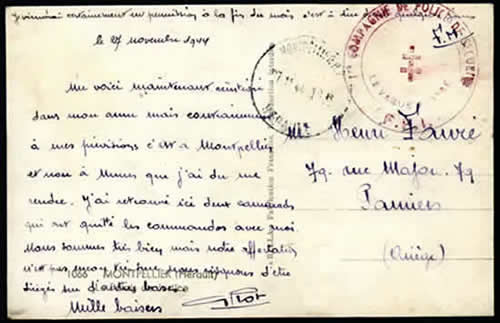 Je viendrai certainement en permission à la fin du mois c'est à dire
le 27 novembre 1944
Me voici maintenant
dans mon arme mais contrairement
à mes prévisions c'est à Montpellier
et non à Nimes que j'ai du me
rendre. J'ai retrouvé ici deux camarades
qui ont quitté les commandos avec moi.
Nous sommes très bien mais notre affectation
n'est pas nous risquons d'être
dirigés sur d'autres bases
Mille baisers
1083 MONTPELLIER (Hérault)
MONTPELLIER
HERAULT
COMPAGNIE DE POLICE DE SECURITE
F.F.I.
F.M.
Mr Henri Fauré
79. rue Major. 79
Pamiers
(Ariège)